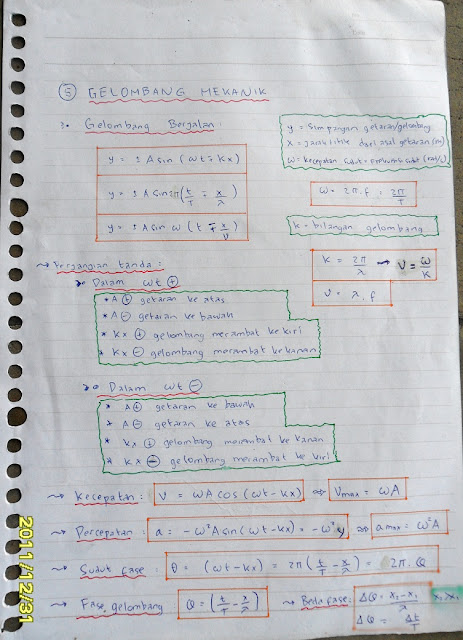 ⑤ GELOMBANG MEKANIK
3. Gelombang Berjalan:
y = ± A sin (ωt ∓ kx)
y = ± A sin 2π (t/T ∓ x/λ)
y = ± A sin ω (t ∓ x/v)
y = simpangan getaran/gelombang
x = jarak titik dari asal getaran (m)
ω = kecepatan sudut = frekuensi sudut (rad/s)
ω = 2π.f = 2π/T
k = bilangan gelombang
k = 2π/λ → v = ω/k
v = λ.f
Perjanjian tanda:
Dalam ωt ⊕
* A ⊕ getaran ke atas
* A ⊖ getaran ke bawah
* kx ⊕ gelombang merambat ke kiri
* kx ⊖ gelombang merambat ke kanan
Dalam ωt ⊖
* A ⊕ getaran ke bawah
* A ⊖ getaran ke atas
* kx ⊕ gelombang merambat ke kanan
* kx ⊖ gelombang merambat ke kiri
Kecepatan: v = ωA cos (ωt-kx) ⇒ Vmax = ωA
Percepatan: a = -ω²A sin (ωt-kx) = -ω²y ⇒ a max = ω²A
Sudut fase: θ = (ωt-kx) = 2π(t/T - x/λ) = 2π.φ
Fase gelombang φ = (t/T - x/λ) → Beda fase: Δφ = x₂-x₁/λ x₂>x₁
Δφ = Δt/T
2011/12/31